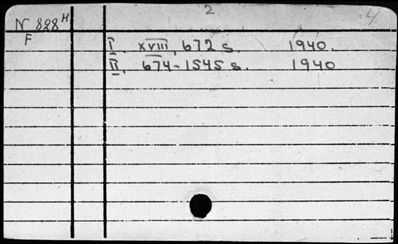 2
4
N 828 H
F
I XVIII, 672 s. 1940.
II, 674-1545 s. 1940